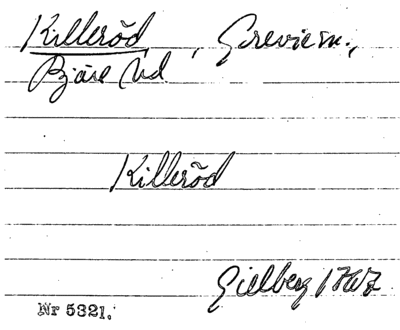 Killeröd, Greviesn.,
Bjäre hd
Killeröd
Gillberg 1767
Nr 5321.